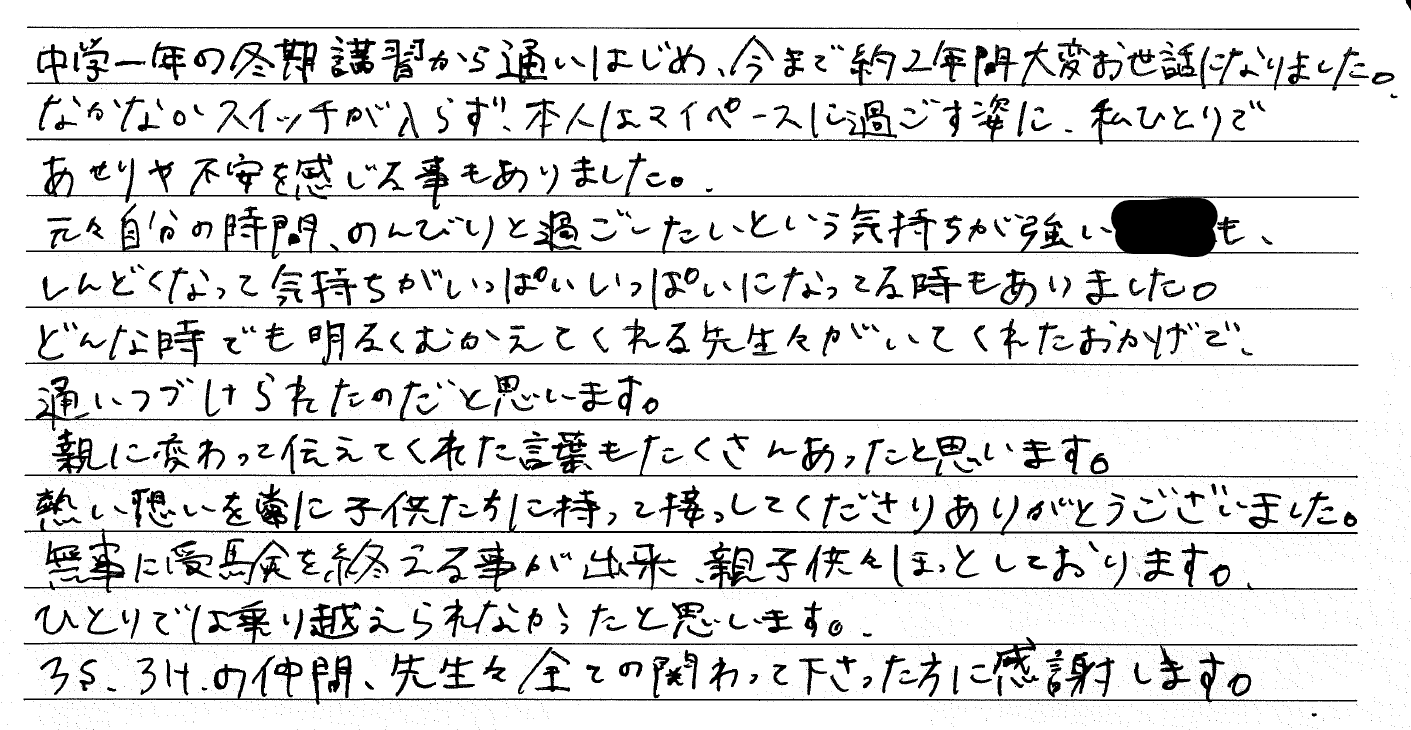 中学一年の冬期講習から通いはじめ、今まで約2年間大変お世話になりました。
なかなかスイッチが入らず、本人はマイペースに過ごす姿に、私ひとりで
あせりや不安を感じる事もありました。
元々自分の時間、のんびりと過ごしたいという気持ちが強い も、
しんどくなって気持ちがいっぱいいっぱいになってる時もありました。
どんな時でも明るくむかえてくれる先生々がいてくれたおかげで、
通いつづけられたのだと思います。
親に変わって伝えてくれた言葉もたくさんあったと思います。
熱い想いを常に子供たちに持って接っしてくださりありがとうございました。
無事に受験を終える事が出来、親子供々ほっとしております。
ひとりでは乗り越えられなかったと思います。
3S、3H、の仲間、先生々全ての関わって下さった方に感謝します。